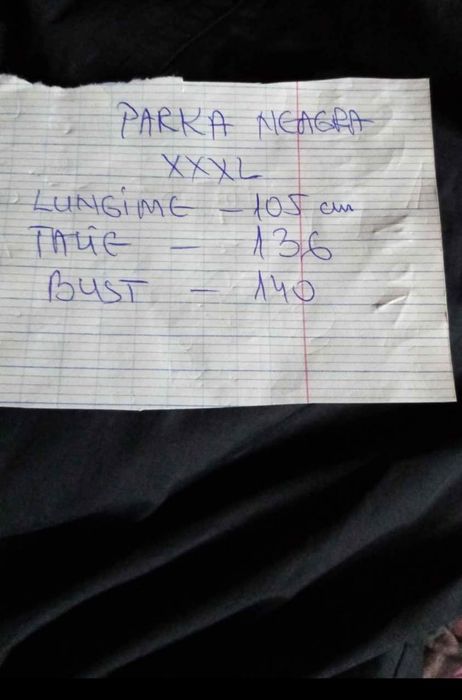 PARKA NEAGRA
XXXL
LUNGIME - 105 cm
TALIE - 136
BUST - 140